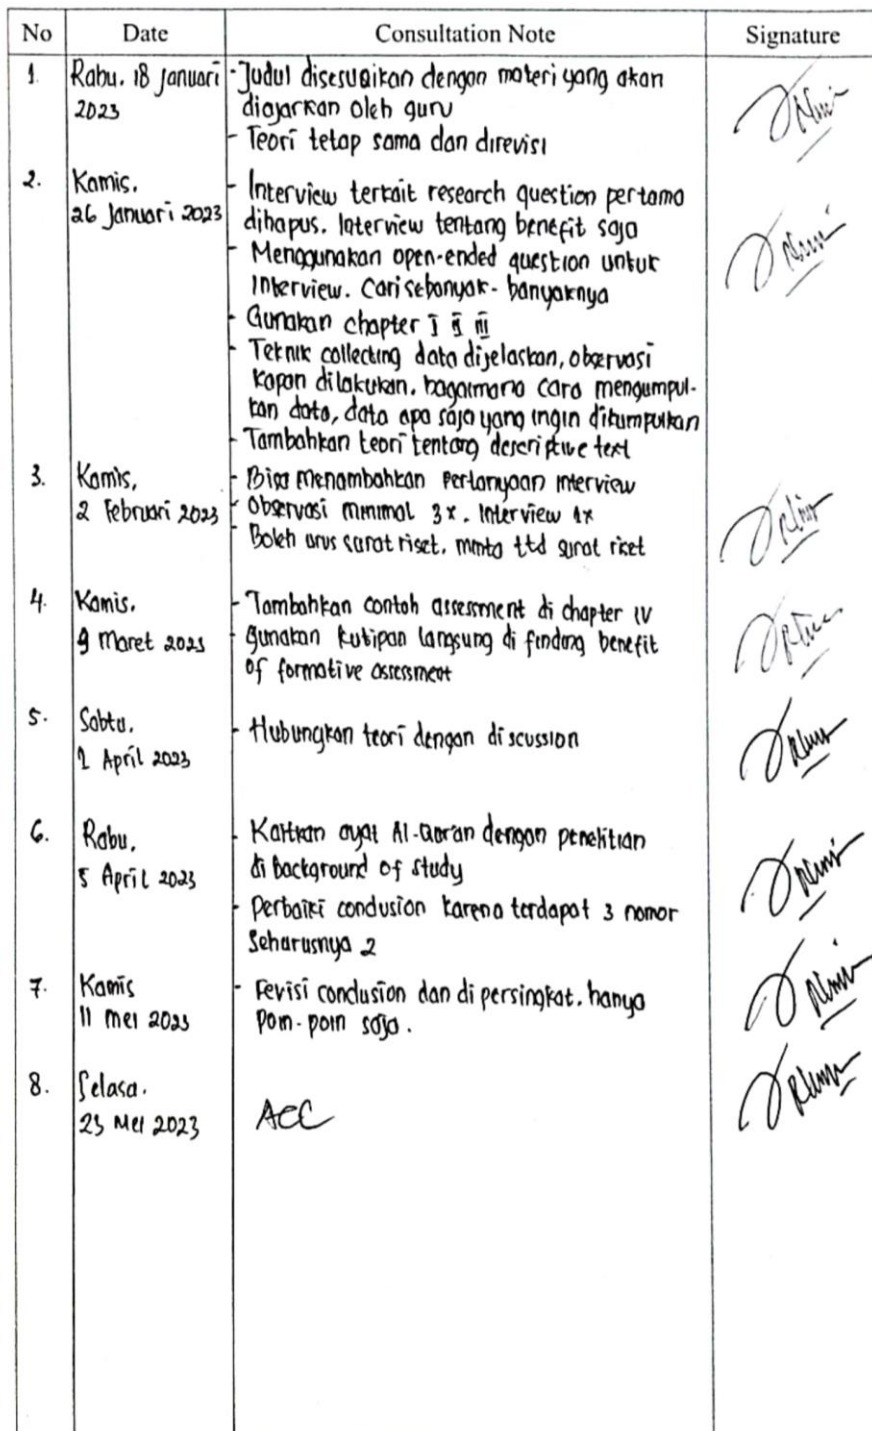 No Date Consultation Note Signature
1. Rabu, 18 Januari - Judul disesuaikan dengan materi yang akan
2023 diajarkan oleh guru
- Teori tetap sama dan direvisi
2. Kamis, - Interview terkait research question pertama
26 Januari 2023 dihapus. Interview tentang benefit saja
- Menggunakan open-ended question untuk
Interview. Cari sebanyak-banyaknya
- Gunakan chapter I II III
- Teknik collecting data dijelaskan, observasi
kapan dilakukan, bagaimana cara mengumpul-
kan data, data apa saja yang ingin dikumpulkan
- Tambahkan teori tentang descriptive text
3. Kamis, - Bisa menambahkan pertanyaan interview
2 Februari 2023 - Observasi minimal 3x. Interview 1x
- Boleh urus surat riset, minta ttd surat riset
4. Kamis, - Tambahkan contoh assessment di chapter IV
9 Maret 2023 - gunakan kutipan langsung di finding benefit
of formative assessment
5. Sabtu, - Hubungkan teori dengan discussion
1 April 2023
6. Rabu, - Kaitkan ayat Al-Quran dengan penelitian
5 April 2023 di background of study
- Perbaiki conclusion karena terdapat 3 nomor
Seharusnya 2
7. Kamis - Revisi conclusion dan di persingkat. hanya
11 Mei 2023 poin-poin saja.
8. Selasa.
23 Mei 2023 ACC